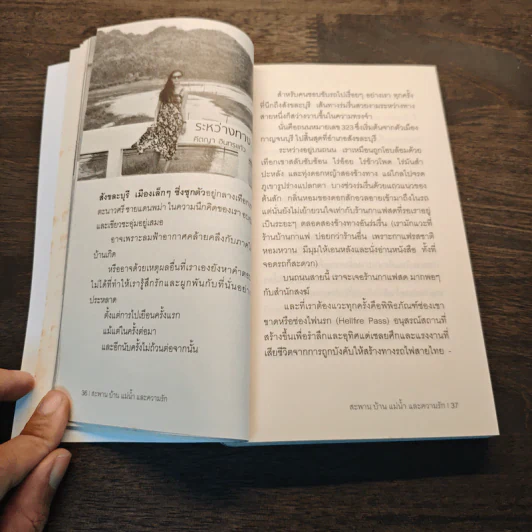 ระหว่างทาง
กัลญา อินทรแก้ว
สังขละบุรี เมืองเล็กๆ ซึ่งซุกตัวอยู่กลางเทือกเขา
ตะนาวศรี ชายแดนพม่า ในความนึกคิดของเรา
และเขียวชะอุ่มอยู่เสมอ
อาจเพราะลมฟ้าอากาศคล้ายคลึงกับภาค
บ้านเกิด
หรืออาจด้วยเหตุผลอื่นที่เราเองยังหาคำตอบ
ไม่ได้ที่ทำให้เรารู้สึกรักและผูกพันกับที่นั่นอย่าง
ประหลาด
ตั้งแต่การไปเยือนครั้งแรก
แม้แต่ในครั้งต่อมา
และอีกนับครั้งไม่ถ้วนต่อจากนั้น
36 | สะพาน บ้าน แม่น้ำ และความรัก
สำหรับคนชอบขับรถไปเรื่อยๆ อย่างเรา ทุกครั้ง
ที่นึกถึงสังขละบุรี เส้นทางร่มรื่นสวยงามระหว่างทาง
สายหนึ่งก็สว่างวาบขึ้นในความทรงจำ
นั่นคือถนนหมายเลข 323 ซึ่งเริ่มต้นจากตัวเมือง
กาญจนบุรี ไปสิ้นสุดที่อำเภอสังขละบุรี
ระหว่างอยู่บนถนน เราเหมือนถูกโอบล้อมด้วย
เทือกเขาสลับซับซ้อน ไร่อ้อย ไร่ข้าวโพด ไร่มันสำ
ปะหลัง และทุ่งดอกหญ้าสองข้างทาง แม้ไกลไปจรด
ภูเขารูปร่างแปลกตา บางช่วงร่มรื่นด้วยแถวแนวของ
ต้นสัก กลิ่นหอมของดอกสักอวลอายเข้ามาถึงในรถ
แต่นั่นยังไม่เย้ายวนใจเท่ากับร้านกาแฟสดที่รอเราอยู่
เป็นระยะๆ ตลอดสองข้างทางอันร่มรื่น (เรามักแวะที่
ร้านบ้านกาแฟ บ่อยกว่าร้านอื่น เพราะกาแฟรสชาติ
หอมหวาน มีมุมให้เอนหลังและนั่งอ่านหนังสือ ทั้งที่
จอดรถก็สะดวก)
บนถนนสายนี้ เราจะเจอร้านกาแฟสด มากพอๆ
กับสำนักสงฆ์
และที่เราต้องแวะทุกครั้งคือพิพิธภัณฑ์ช่องเขา
ขาดหรือช่องไฟนรก (Hellfire Pass) อนุสรณ์สถานที่
สร้างขึ้นเพื่อรำลึกและอุทิศแด่เชลยศึกและแรงงานที่
เสียชีวิตจากการถูกบังคับให้สร้างทางรถไฟสายไทย -
สะพาน บ้าน แม่น้ำ และความรัก | 37